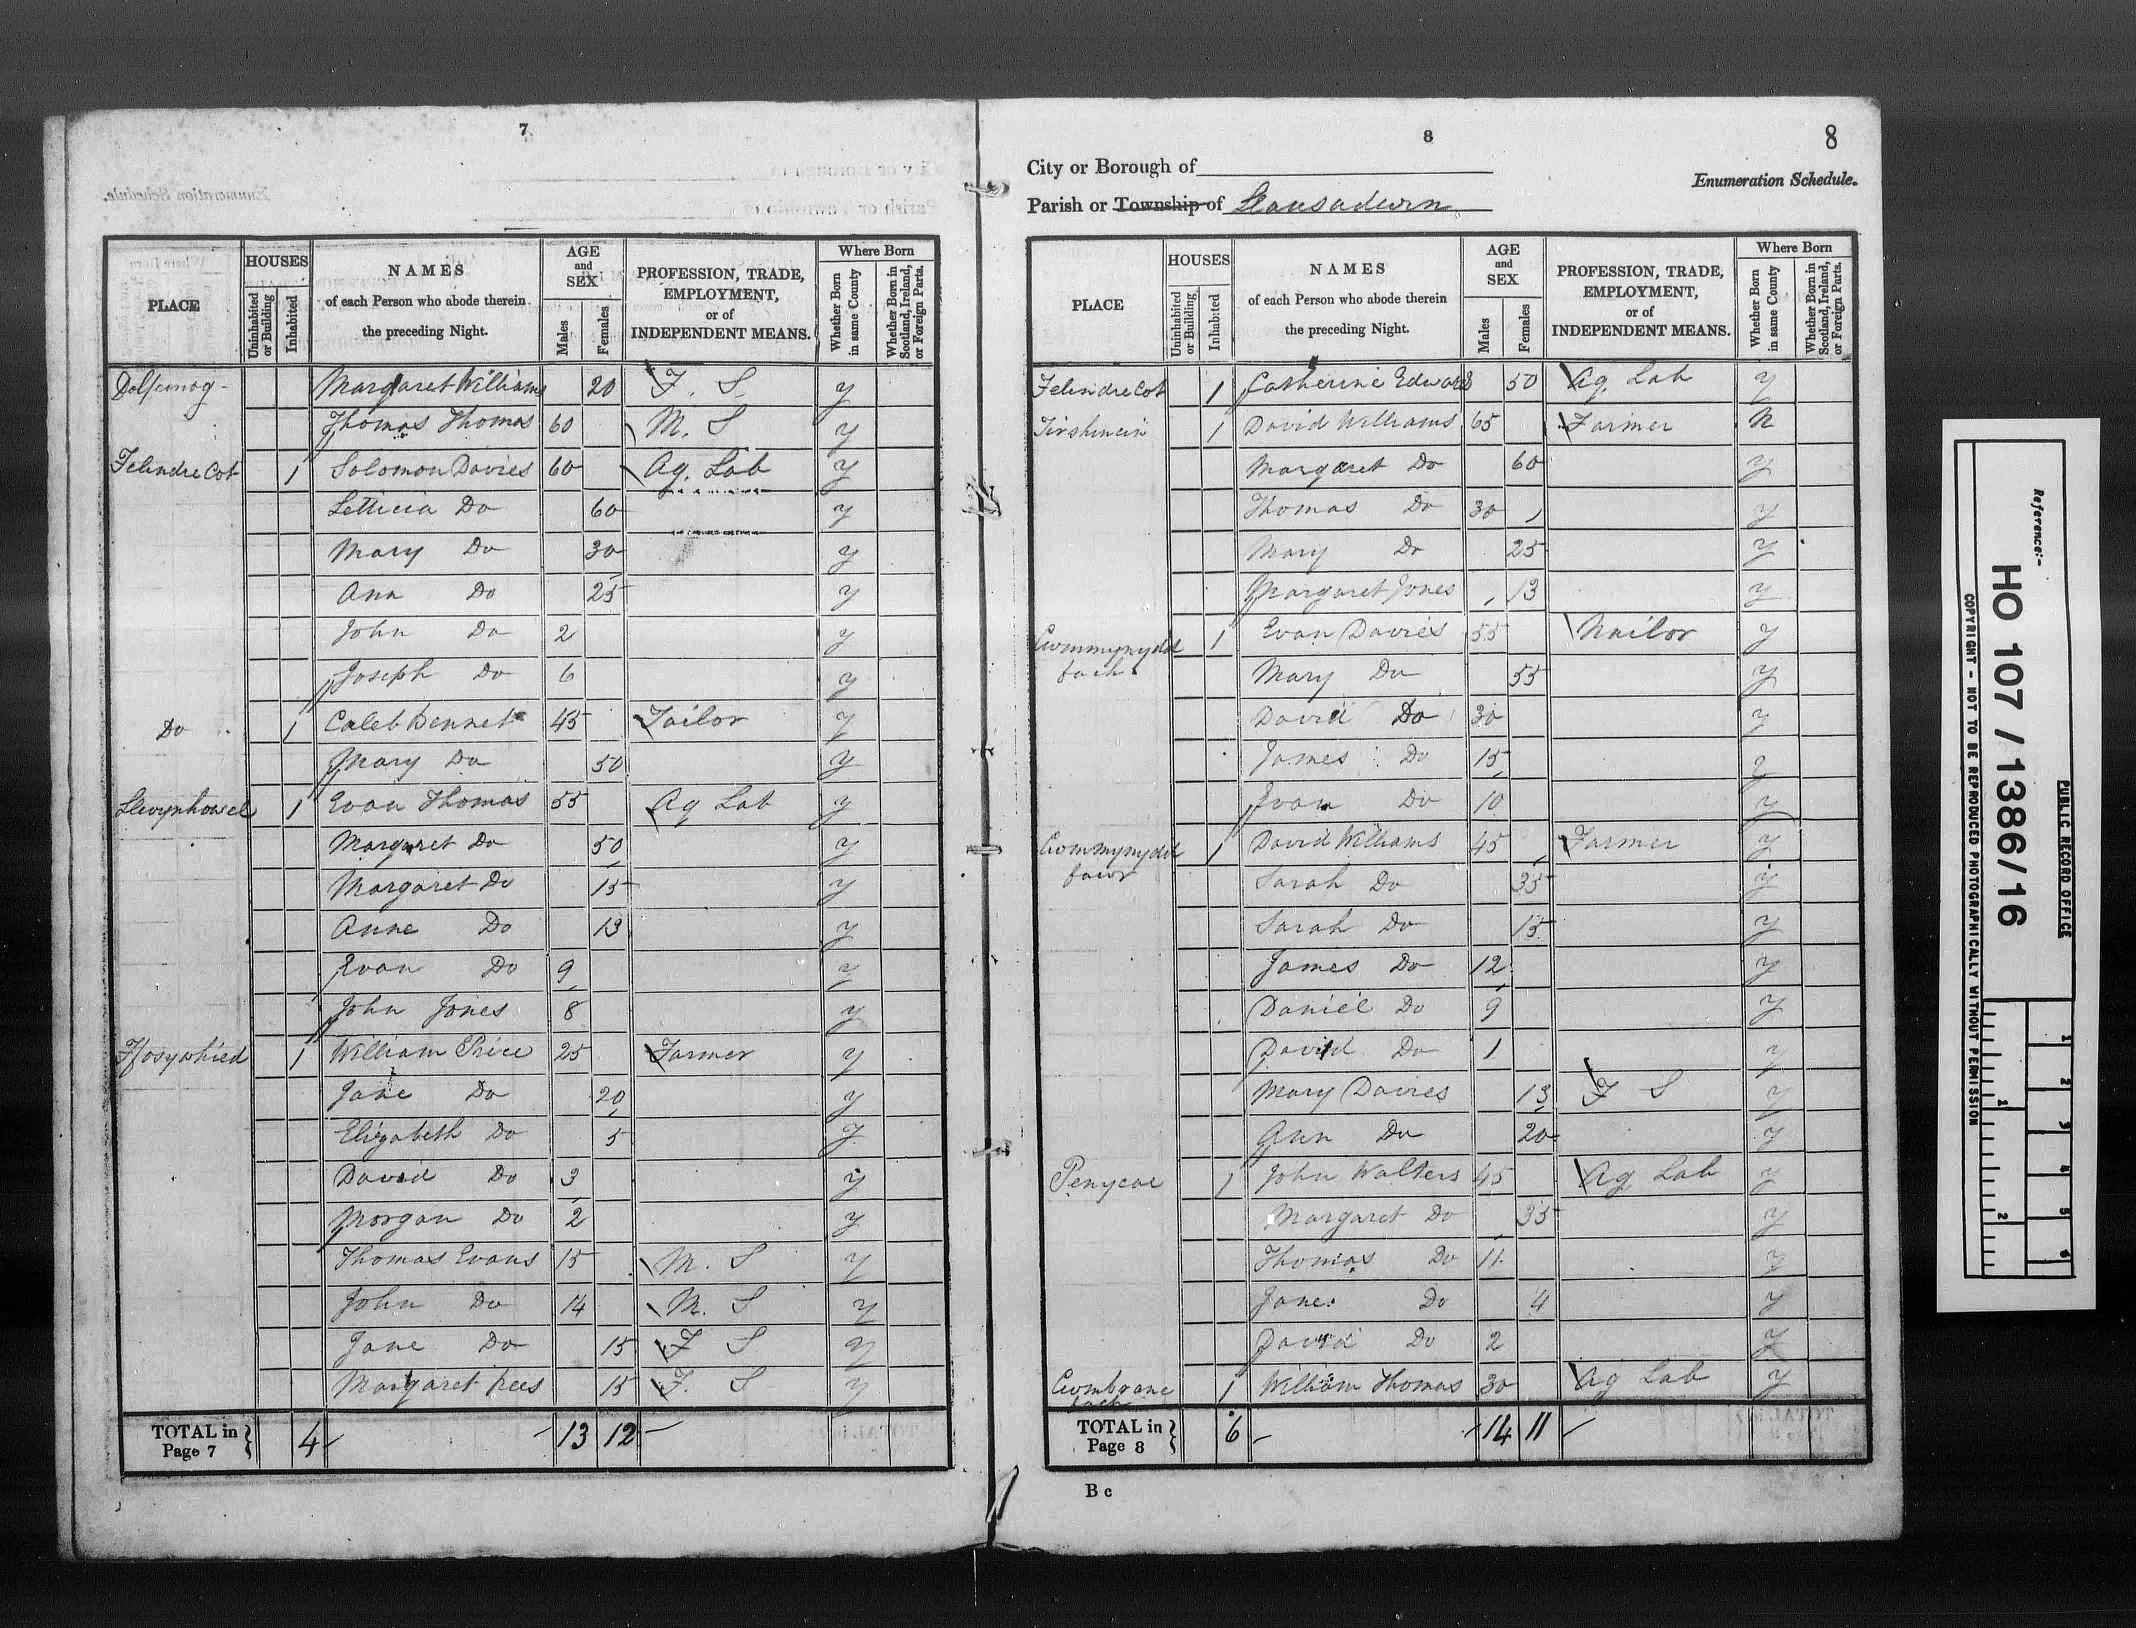 7
PLACE
HOUSES
Uninhabited or Building
Inhabited
NAMES
of each Person who abode therein
the preceding Night.
AGE
and
SEX
Males
Females
PROFESSION, TRADE,
EMPLOYMENT,
or of
INDEPENDENT MEANS.
Where Born
Whether Born in same County
Whether Born in Scotland, Ireland, or Foreign Parts.
Margaret Williams 20 F. S. y
Thomas Thomas 60 M. S y
Felindre Cot 1 Solomon Davies 60 Ag. Lab y
Letticia Do 60 y
Mary Do 30 y
Ann Do 25 y
John Do 2 y
Joseph Do 6 y
Do 1 Caleb Bennet 45 Tailor y
Mary Do 50 y
Llwynhowel 1 Evan Thomas 55 Ag Lab y
Margaret Do 50 y
Margaret Do 15 y
Anne Do 13 y
Evan Do 9 y
John Jones 8 y
1 William Price 25 Farmer y
Jane Do 20 y
Elizabeth Do 5 y
David Do 3 y
Morgan Do 2 y
Thomas Evans 15 M. S y
John Do 14 M. S y
Jane Do 15 F S y
Margaret Rees 15 F. S y
TOTAL in
Page 7 } 4 13 12
8
8
City or Borough of
Enumeration Schedule.
Parish or Township of Llansadwrn
PLACE
HOUSES
Uninhabited or Building
Inhabited
NAMES
of each Person who abode therein
the preceding Night.
AGE
and
SEX
Males
Females
PROFESSION, TRADE,
EMPLOYMENT,
or of
INDEPENDENT MEANS.
Where Born
Whether Born in same County
Whether Born in Scotland, Ireland, or Foreign Parts.
Felindre Cot 1 Catherine Edwards 50 Ag. Lab y
1 David Williams 65 Farmer N
Margaret Do 60 y
Thomas Do 30 y
Mary Do 25 y
Margaret Jones 13 y
Cwmmynydd 1 Evan Davies 55 Nailor y
bach Mary Do 55 y
David Do 30 y
James Do 15 y
Evan Do 10 y
Cwmmynydd 1 David Williams 45 Farmer y
fawr Sarah Do 35 y
Sarah Do 15 y
James Do 12 y
Daniel Do 9 y
David Do 1 y
Mary Davies 13 F S y
Ann Do 20 y
Penycae 1 John Walters 45 Ag Lab y
Margaret Do 35 y
Thomas Do 11 y
Jane Do 4 y
David Do 2 y
1 William Thomas 30 Ag Lab y
bach
TOTAL in
Page 8 } 6 14 11
B c
Reference:-
HO 107 / 1386/16
PUBLIC RECORD OFFICE
COPYRIGHT - NOT TO BE REPRODUCED PHOTOGRAPHICALLY WITHOUT PERMISSION
1 2 3 4 5 6
1 2